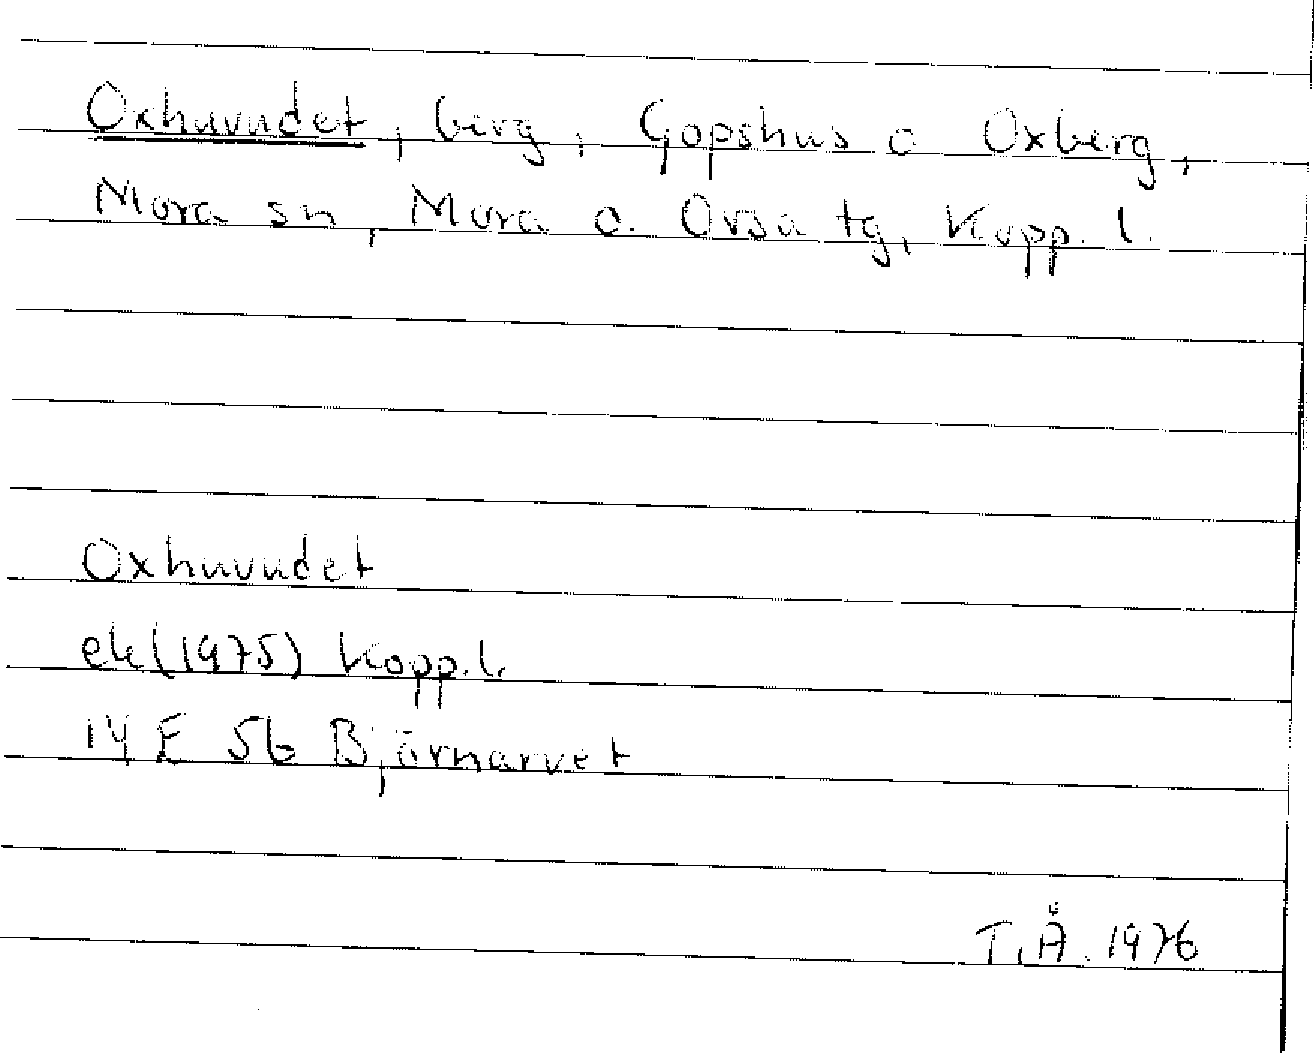 Oxhuvudet, berg, Gopshus o Oxberg,
Mora sn, Mora o. Orsa tg, Kopp. l.
Oxhuvudet
ek (1975) Kopp. l.
14 E 5b Bjärnarvet
T.Å. 1976